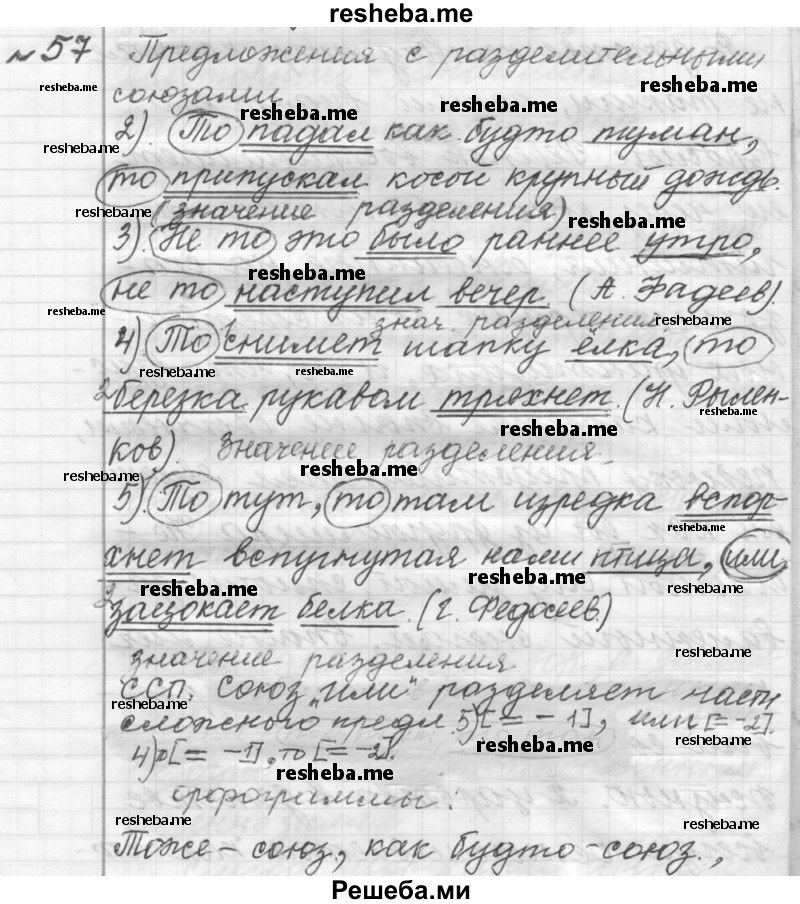 resheba.me
№57 Предложения с разделительными
союзами
2). То падал как будто туман,
то припускал косой крупный дождь.
(значение разделения)
3). Не то это было раннее утро,
не то наступил вечер (А. Фадеев).
знач. разделения
4) То снимет шапку ёлка, то
березка рукавом тряхнет. (Н. Рылен-
ков). Значение разделения.
5). То тут, то там изредка вспор-
хнет вспугнутая нами птица, или
зацокает белка. (Г. Федосеев)
значение разделения
ССП. Союз "или" разделяет части
сложного предл. 5) [= - 1], или [= -2].
4) то [= -1], то [= -2].
орфограммы:
Тоже - союз, как будто - союз.,
Решеба.ми